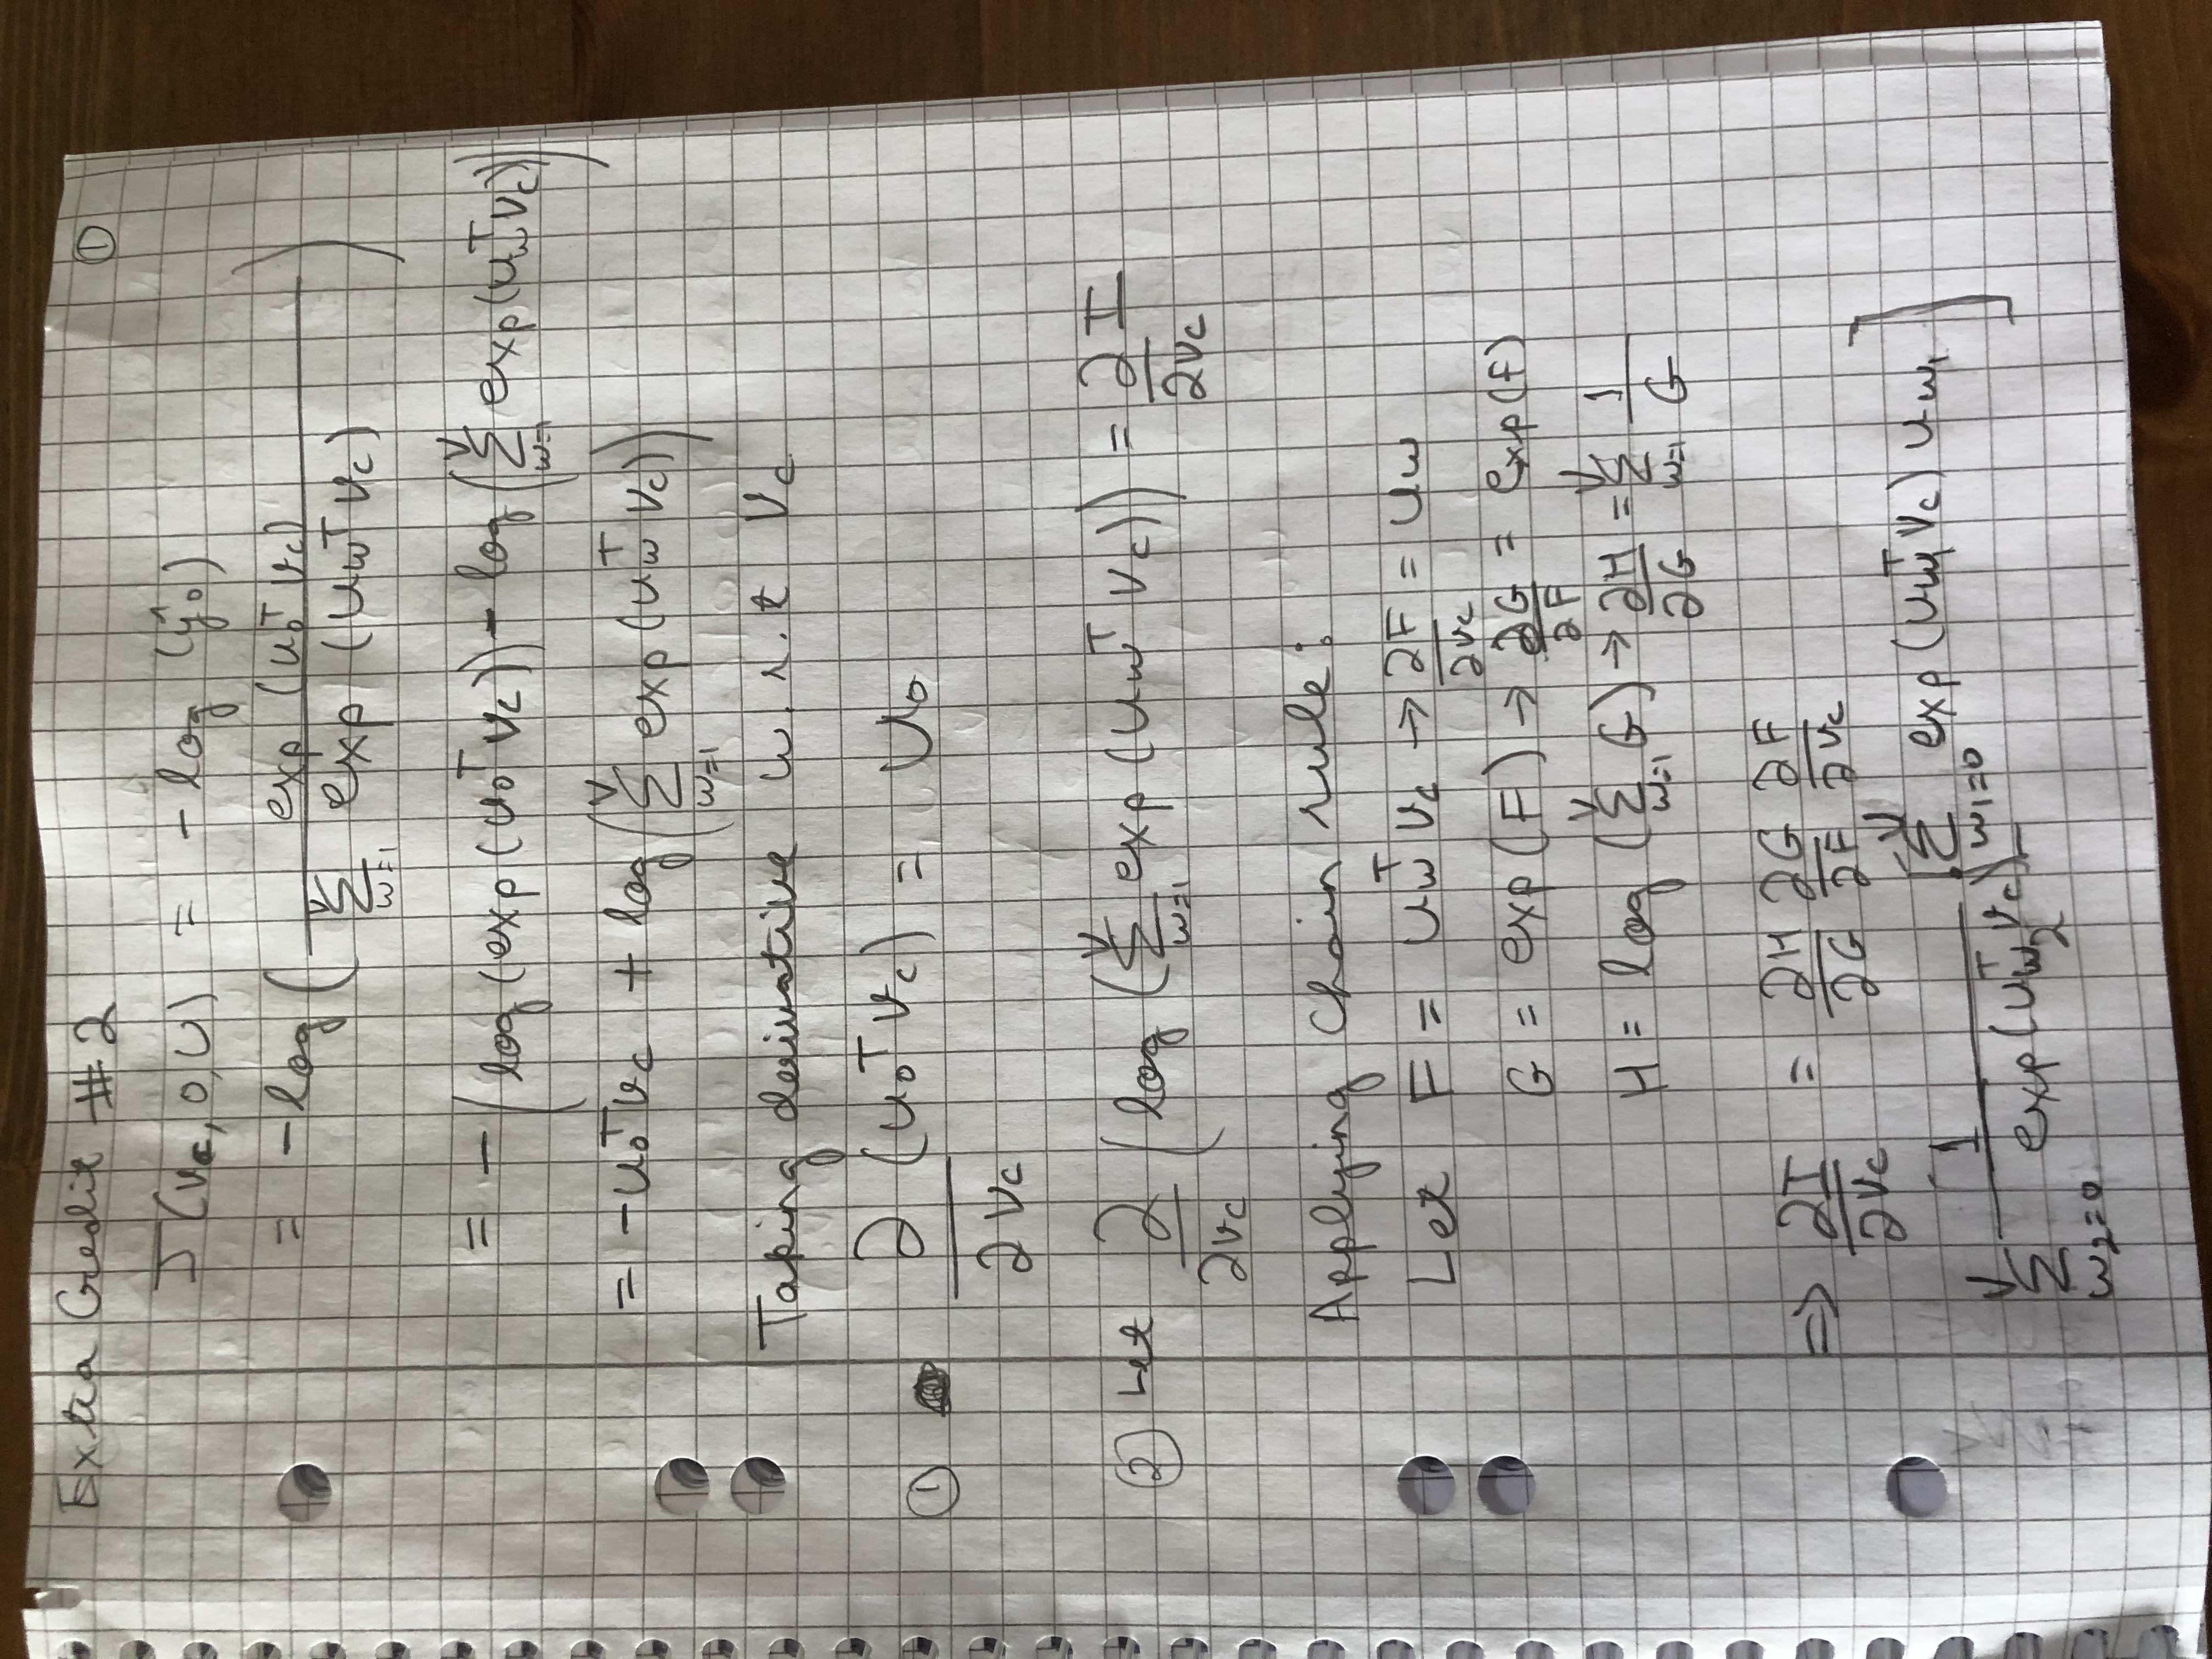 Extra Credit #2 ①
J(v_c, o, U) = -log(ŷ_o)
= -log( exp(u_o^T v_c) / ∑_{w=1}^{V} exp(u_w^T v_c) )
= -( log(exp(u_o^T v_c)) - log( ∑_{w=1}^{V} exp(u_w^T v_c) ) )
= -u_o^T v_c + log( ∑_{w=1}^{V} exp(u_w^T v_c) )
Taking derivative w.r.t v_c
① ∂/∂v_c (u_o^T v_c) = u_o
② Let ∂/∂v_c ( log( ∑_{w=1}^{V} exp(u_w^T v_c) ) ) = ∂I/∂v_c
Applying Chain rule:
Let F = u_w^T v_c → ∂F/∂v_c = u_w
G = exp(F) → ∂G/∂F = exp(f)
H = log( ∑_{w=1}^{V} G ) → ∂H/∂G = ∑_{w=1}^{V} 1/G
⇒ ∂I/∂v_c = ∂H/∂G ∂G/∂F ∂F/∂v_c
∑_{w_2=0}^{V} 1/exp(u_{w_2}^T v_c) [ ∑_{w_1=0}^{V} exp(u_{w_1}^T v_c) u_{w_1} ]